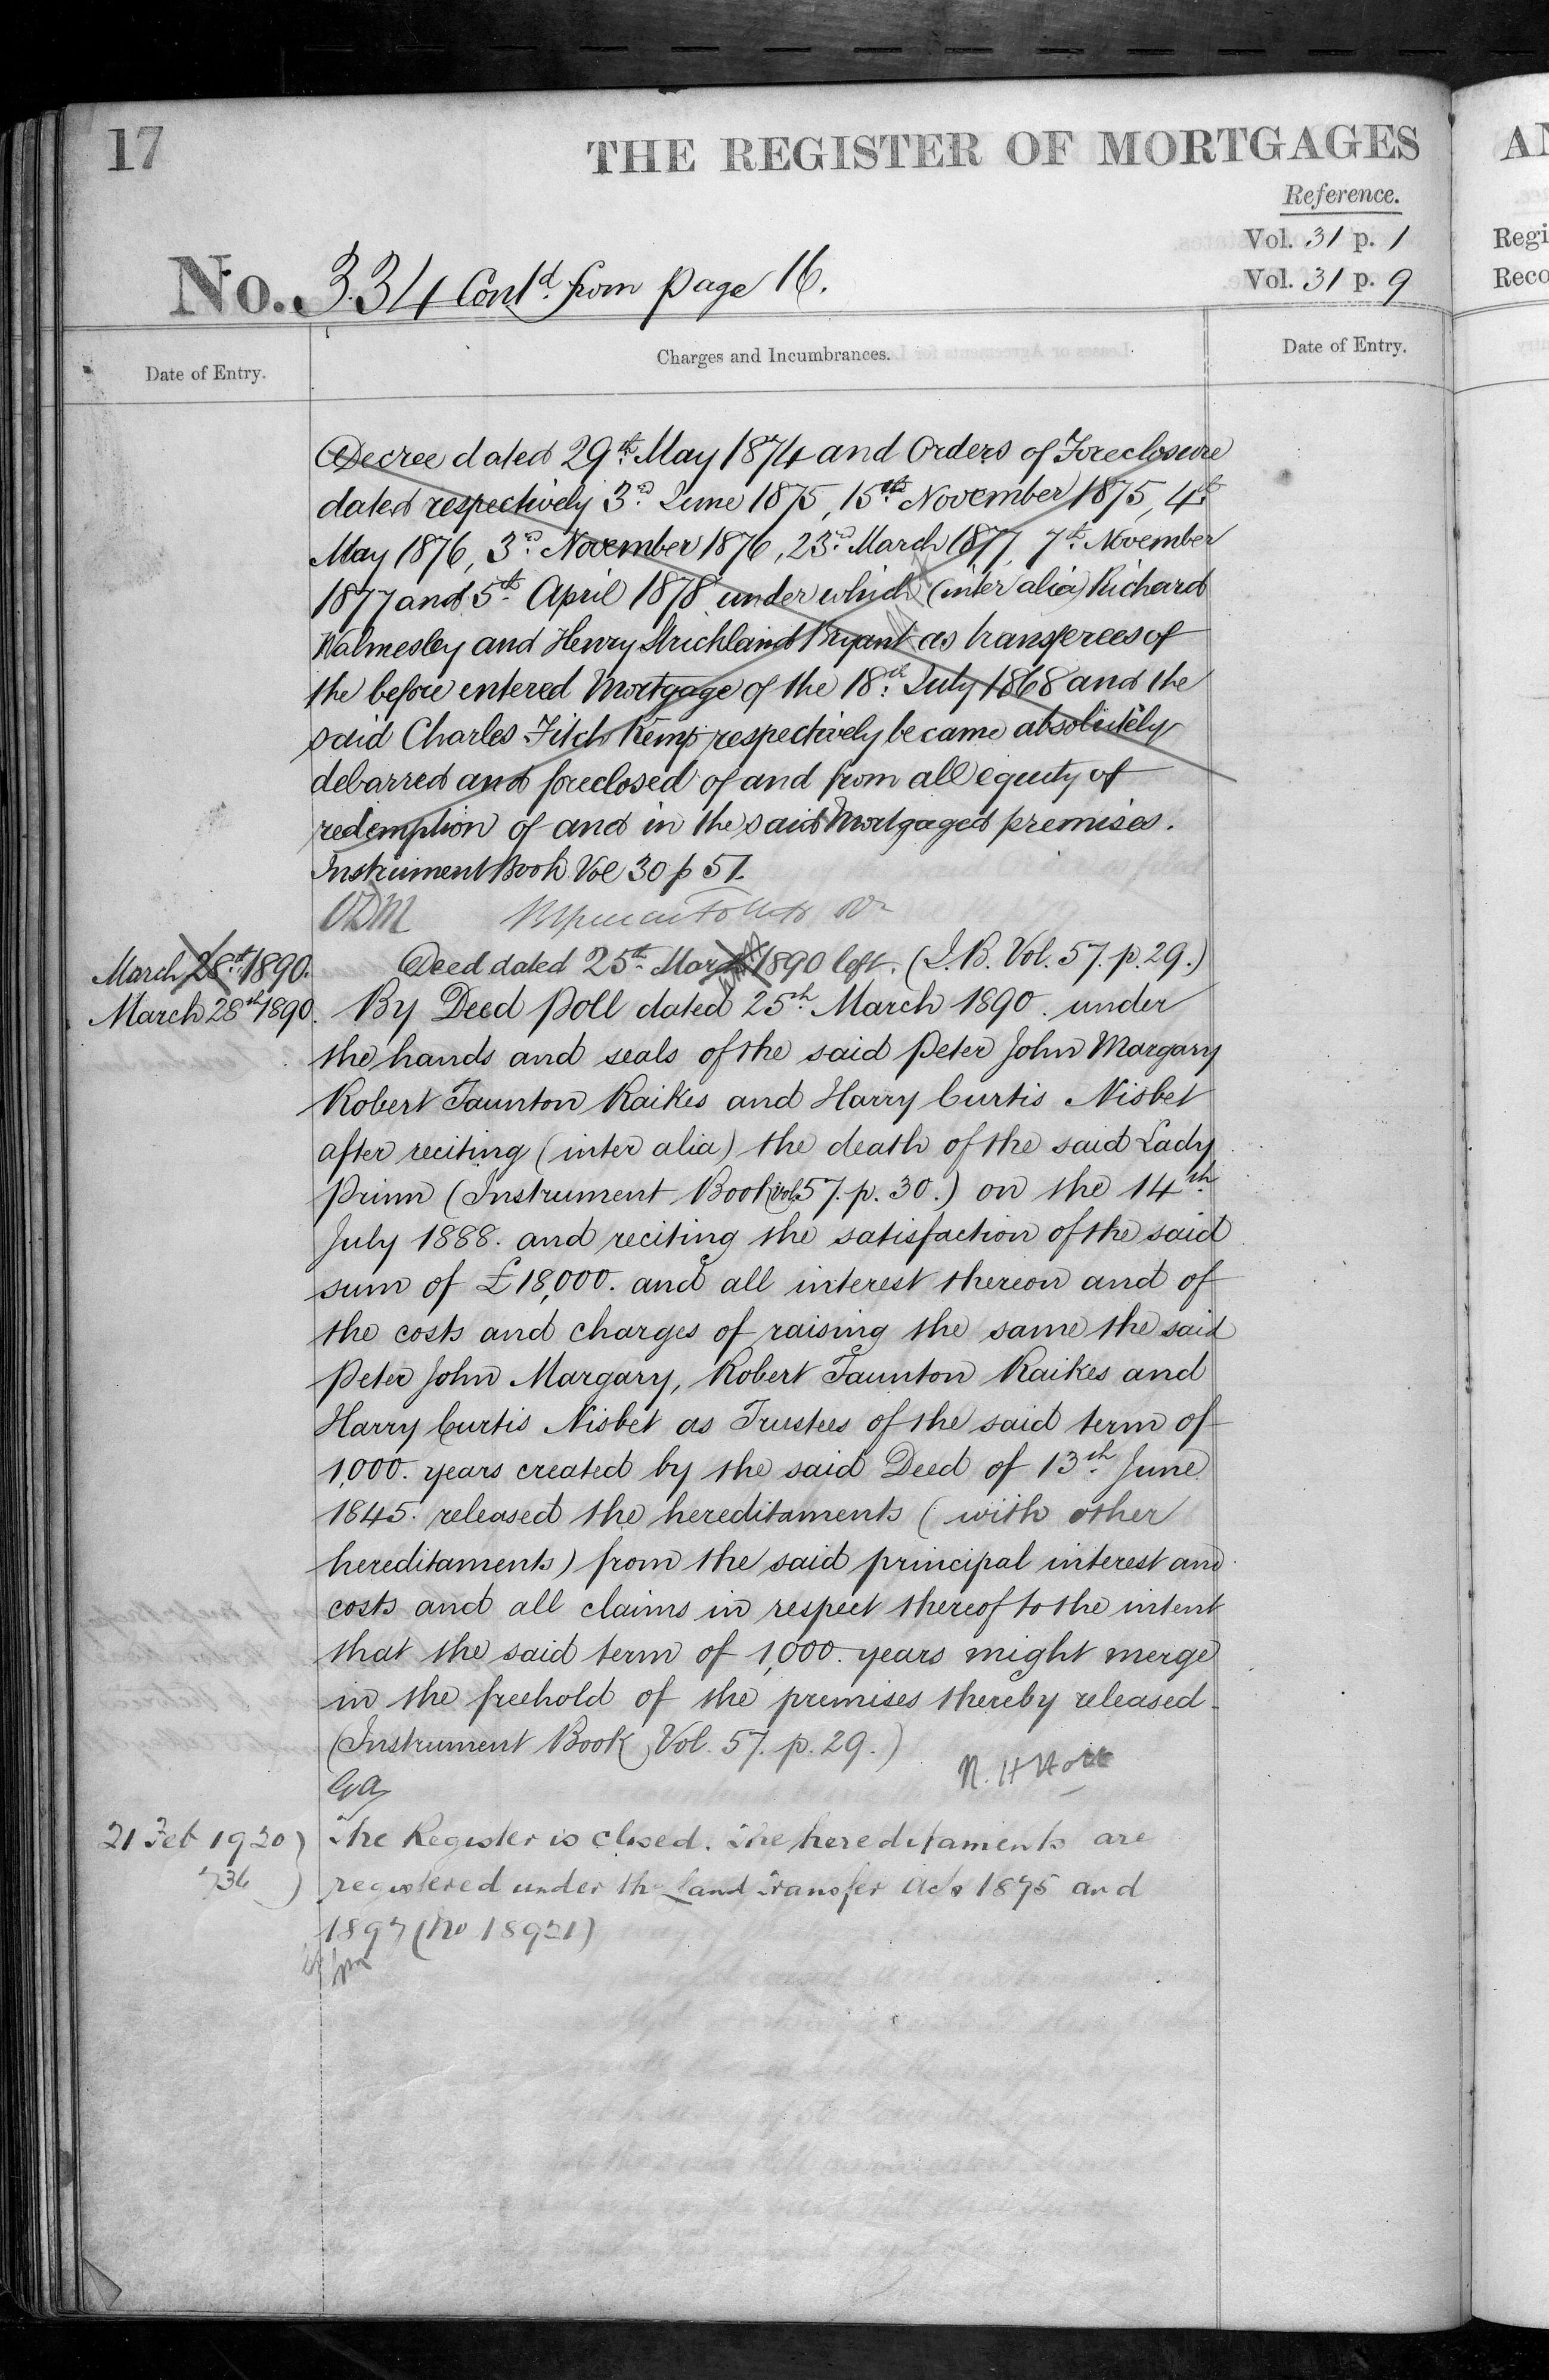 17
THE REGISTER OF MORTGAGES
Reference.
Vol. 31 p. 1
Vol. 31 p. 9
No. 334 Contd. from page 16.
Date of Entry.
Charges and Incumbrances.
Date of Entry.
Decree dated 29th. May 1874 and Orders of Foreclosure
dated respectively 3rd. June 1875, 15th. November 1875, 4th.
May 1876, 3rd. November 1876, 23rd. March 1877, 7th. November
1877 and 5th. April 1878 under which (inter alia) Richard
Walmesley and Henry Strickland Bryant as transferees of
the before entered Mortgage of the 18th. July 1868 and the
said Charles Fitch Kemp respectively became absolutely
debarred and foreclosed of and from all equity of
redemption of and in the said Mortgaged premises.
Instrument Book Vol 30 p 51.
March 28th. 1890. Deed dated 25th. March 1890 left. (I.B. Vol. 57. p. 29.)
March 28th 1890. By Deed Poll dated 25th. March 1890. under
the hands and seals of the said Peter John Margary
Robert Taunton Raikes and Harry Curtis Nisbet
after reciting (inter alia) the death of the said Lady
Prinn (Instrument Book vol. 57. p. 30.) on the 14th.
July 1888. and reciting the satisfaction of the said
sum of £18,000. and all interest thereon and of
the costs and charges of raising the same the said
Peter John Margary, Robert Taunton Raikes and
Harry Curtis Nisbet as Trustees of the said term of
1,000. years created by the said Deed of 13th. June
1845. released the hereditaments (with other
hereditaments) from the said principal interest and
costs and all claims in respect thereof to the intent
that the said term of 1,000. years might merge
in the freehold of the premises thereby released.
(Instrument Book Vol. 57. p. 29.)
GA
21 Feb 1920 The Register is closed. The hereditaments are
736 registered under the Land Transfer Acts 1875 and
1897 (No 18921)
AN
Regi
Reco